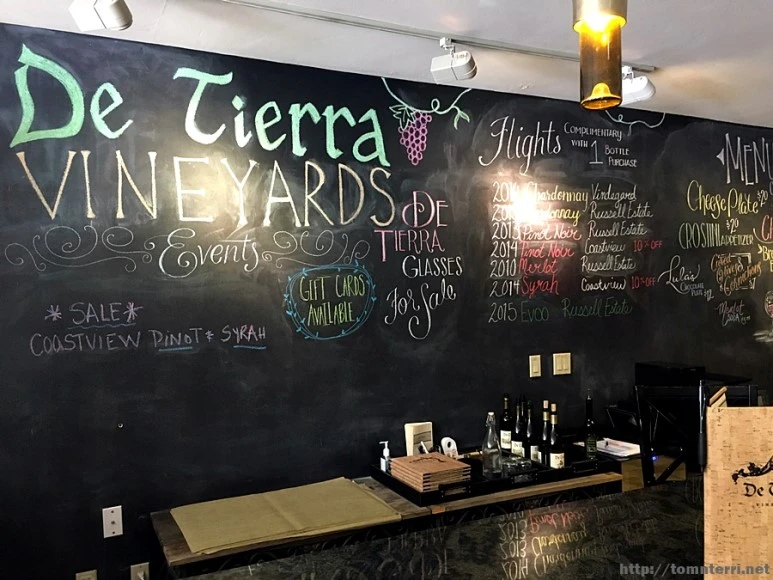 De Tierra
VINEYARDS
Events
*SALE*
COASTVIEW PINOT & SYRAH
GIFT CARDS
AVAILABLE
DE
TIERRA
GLASSES
For Sale
Flights
COMPLIMENTARY
WITH 1 BOTTLE
PURCHASE
Chardonnay Vindegard
Russell Estate
2013 Pinot Noir Russell Estate
2014 Pinot Noir Coastview 10% OFF
2010 Merlot Russell Estate
2014 Syrah Coastview 10% OFF
2015 Evoo Russell Estate
MENU
Cheese Plate $20
$20
CROSTINI APPETIZER
Lula's
Merlot
De
http://tomnterri.net